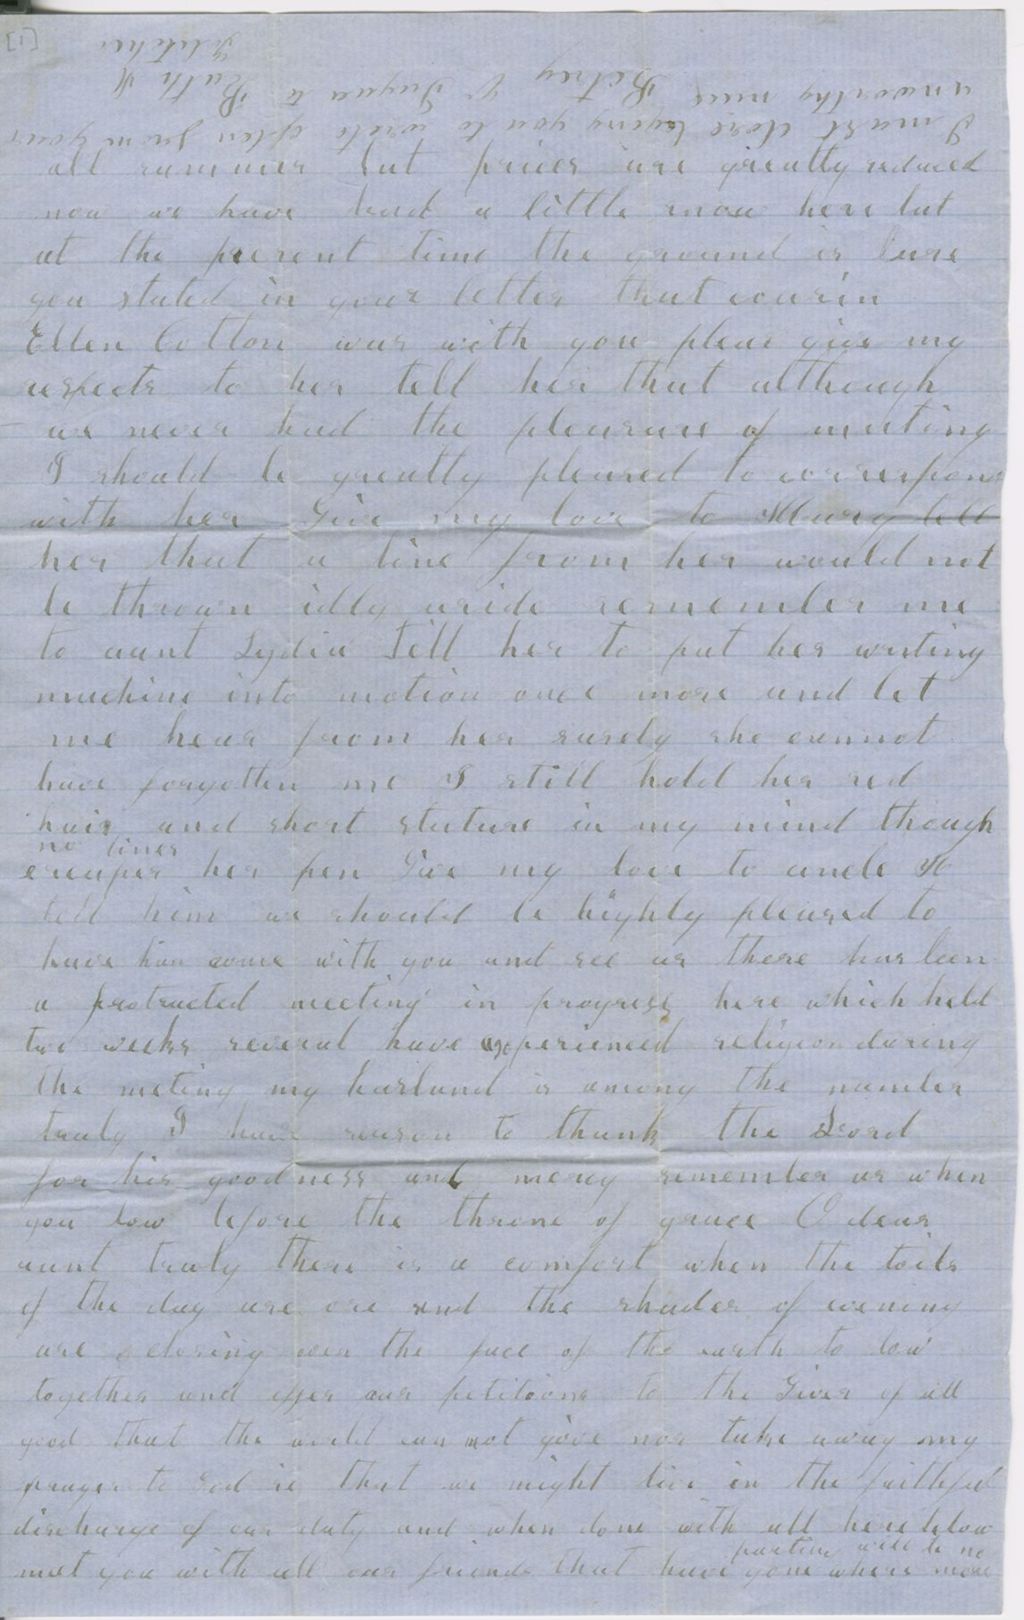 [1]
all summer but prices are greatly reduced
now we have had a little snow here but
at the present time the ground is bare
you stated in your letter that cousin
Ellen Cotton was with you pleas give my
respects to her tell her that although
we never had the pleasure of meeting
I should be greatly pleased to correspond
with her Give my love to Mary tell
her that a line from her would not
be thrown idly aside remember me
to aunt Lydia Tell her to put her writing
machine into motion once more and let
me hear from her surely she cannot
have forgotten me I still hold her red
hair and short stature in my mind though
no lines
escapes her pen Give my love to uncle
tell him we should be highly pleased to
have him come with you and see us there has been
a protracted meeting in progress here which held
two weeks several have experienced religion during
the meting my husband is among the number
truly I have reason to thank the Lord
for his goodness and mercy remember us when
you bow before the throne of grace O dear
aunt truly there is a comfort when the toils
of the day are ore and the shades of evening
are closing over the face of the earth to bow
together and offer our petitions to the Giver of all
good that the world can not give nor take away my
prayer to God is that we might live in the faithful
discharge of our duty and when done with all here below
parting will be no
meet you with all our friends that have gone where more
I must close hoping you to write often from your
unworthy niece Betsey Tugua to Ruth A
Fletcher